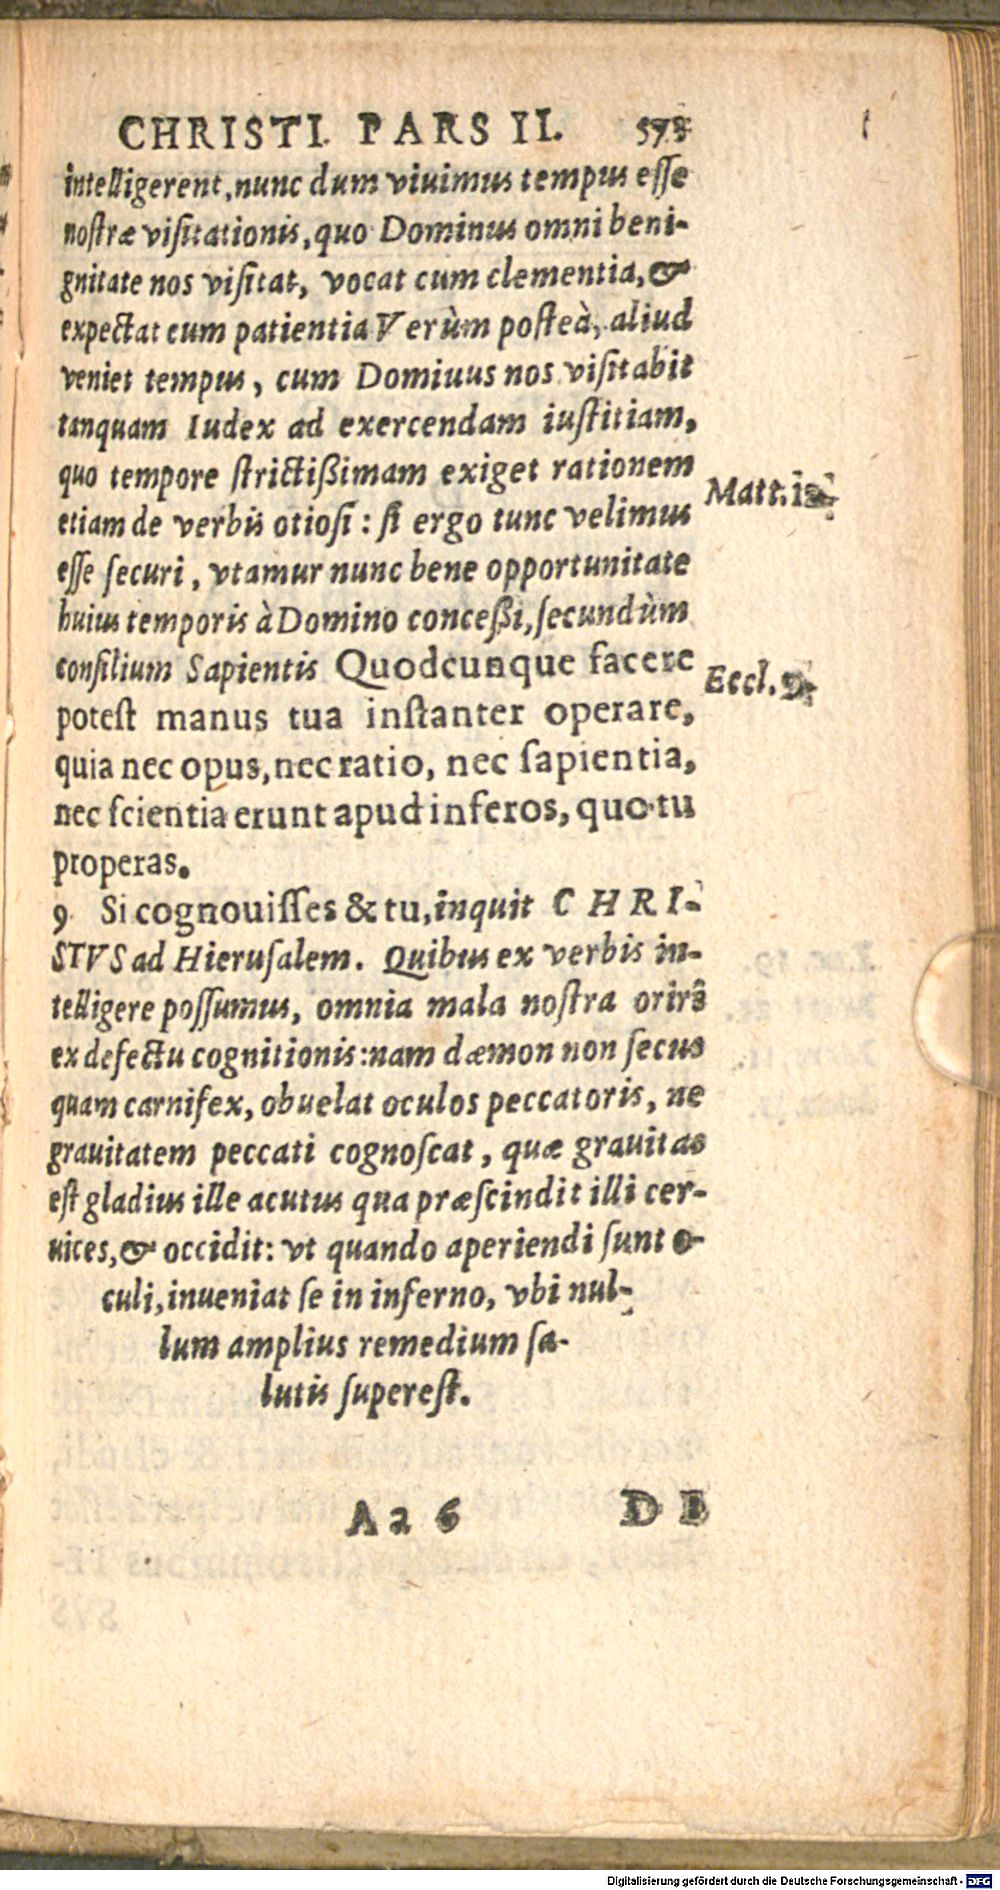 CHRISTI. PARS II.
intelligerent, nunc dum viuimus tempus esse
nostræ visitationis, quo Dominus omni beni-
gnitate nos visitat, vocat cum clementia, &
expectat cum patientia Verùm posteà, aliud
veniet tempus, cum Domiuus nos visitabit
tanquam Iudex ad exercendam iustitiam,
quo tempore strictißimam exiget rationem
Matt.
etiam de verbis otiosi: si ergo tunc velimus
esse securi, vtamur nunc bene opportunitate
huius temporis à Domino conceßi, secundùm
consilium Sapientis Quodcunque facere
Eccl. 9.
potest manus tua instanter operare,
quia nec opus, nec ratio, nec sapientia,
nec scientia erunt apud inferos, quo tu
properas.
9 Si cognouisses & tu, inquit CHRI-
STVS ad Hierusalem. Quibus ex verbis in-
telligere possumus, omnia mala nostra oriri
ex defectu cognitionis: nam dæmon non secus
quam carnifex, obuelat oculos peccatoris, ne
grauitatem peccati cognoscat, quæ grauitas
est gladius ille acutus qua præscindit illi cer-
uices, & occidit: vt quando aperiendi sunt o-
culi, inueniat se in inferno, vbi nul-
lum amplius remedium sa-
lutis superest.
Aa 6 DE
Digitalisierung gefördert durch die Deutsche Forschungsgemeinschaft - DFG